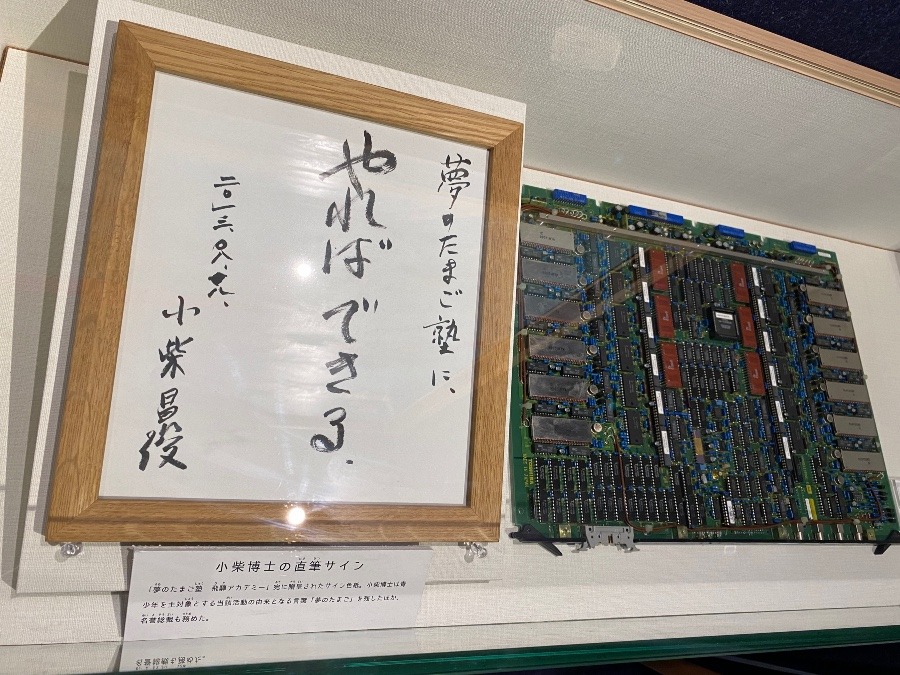 夢のたまご塾に、
やればできる.
二〇一三、〇八、十九、
小柴昌俊
小柴博士の直筆サイン
「夢のたまご塾　飛騨アカデミー」宛に贈呈されたサイン色紙。小柴博士は青
少年を主対象とする当該活動の由来となる言葉「夢のたまご」を残したほか、
名誉総裁も務めた。